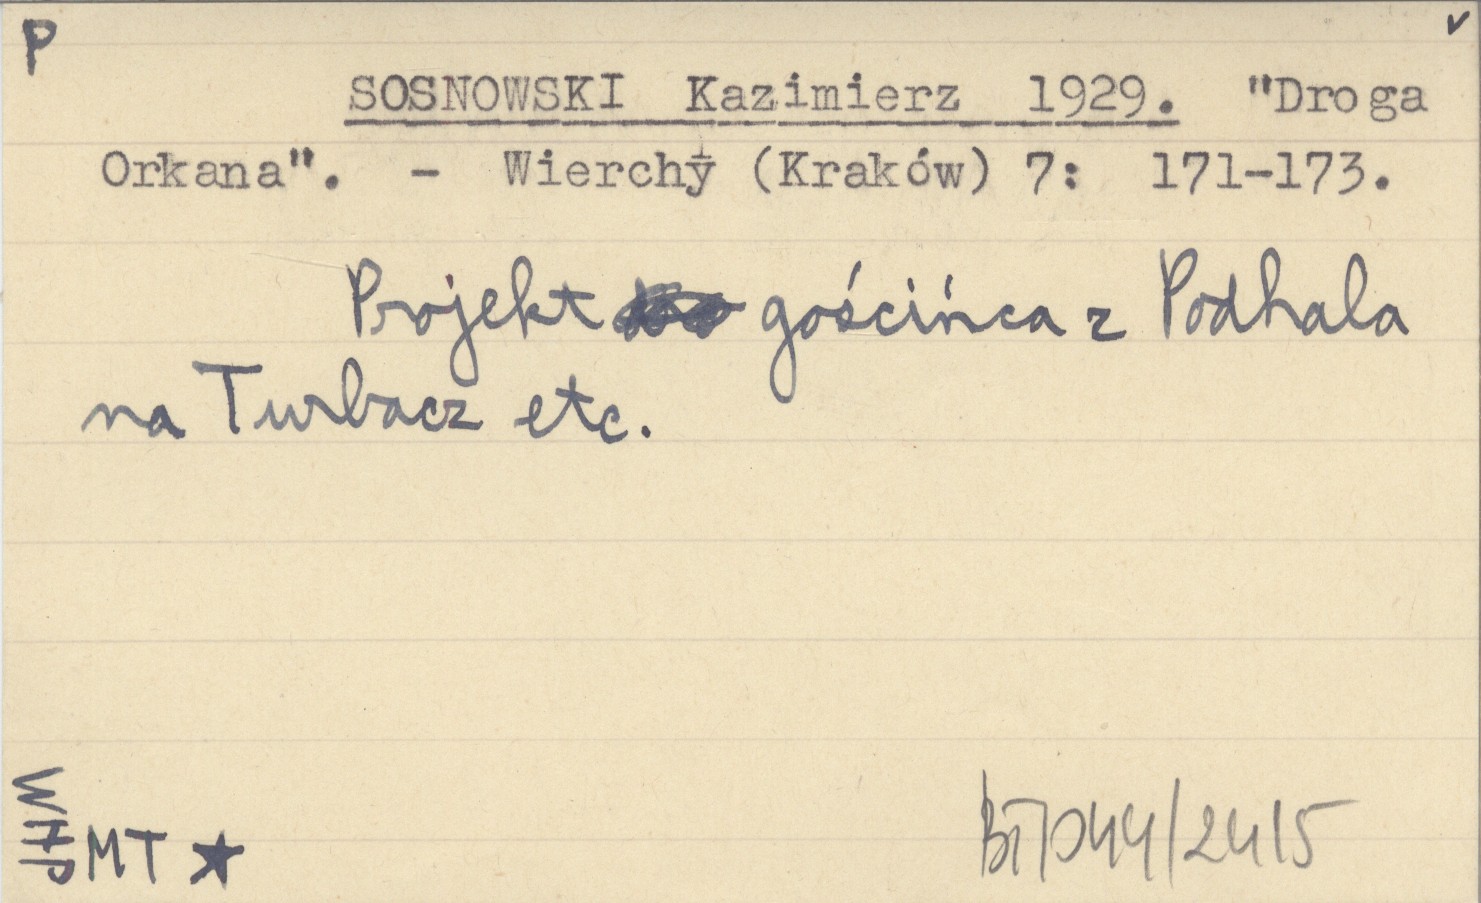 P v
SOSNOWSKI Kazimierz 1929. "Droga
Orkana". - Wierchy (Kraków) 7: 171-173.
Projekt gościńca z Podhala
na Turbacz etc.
MT ★